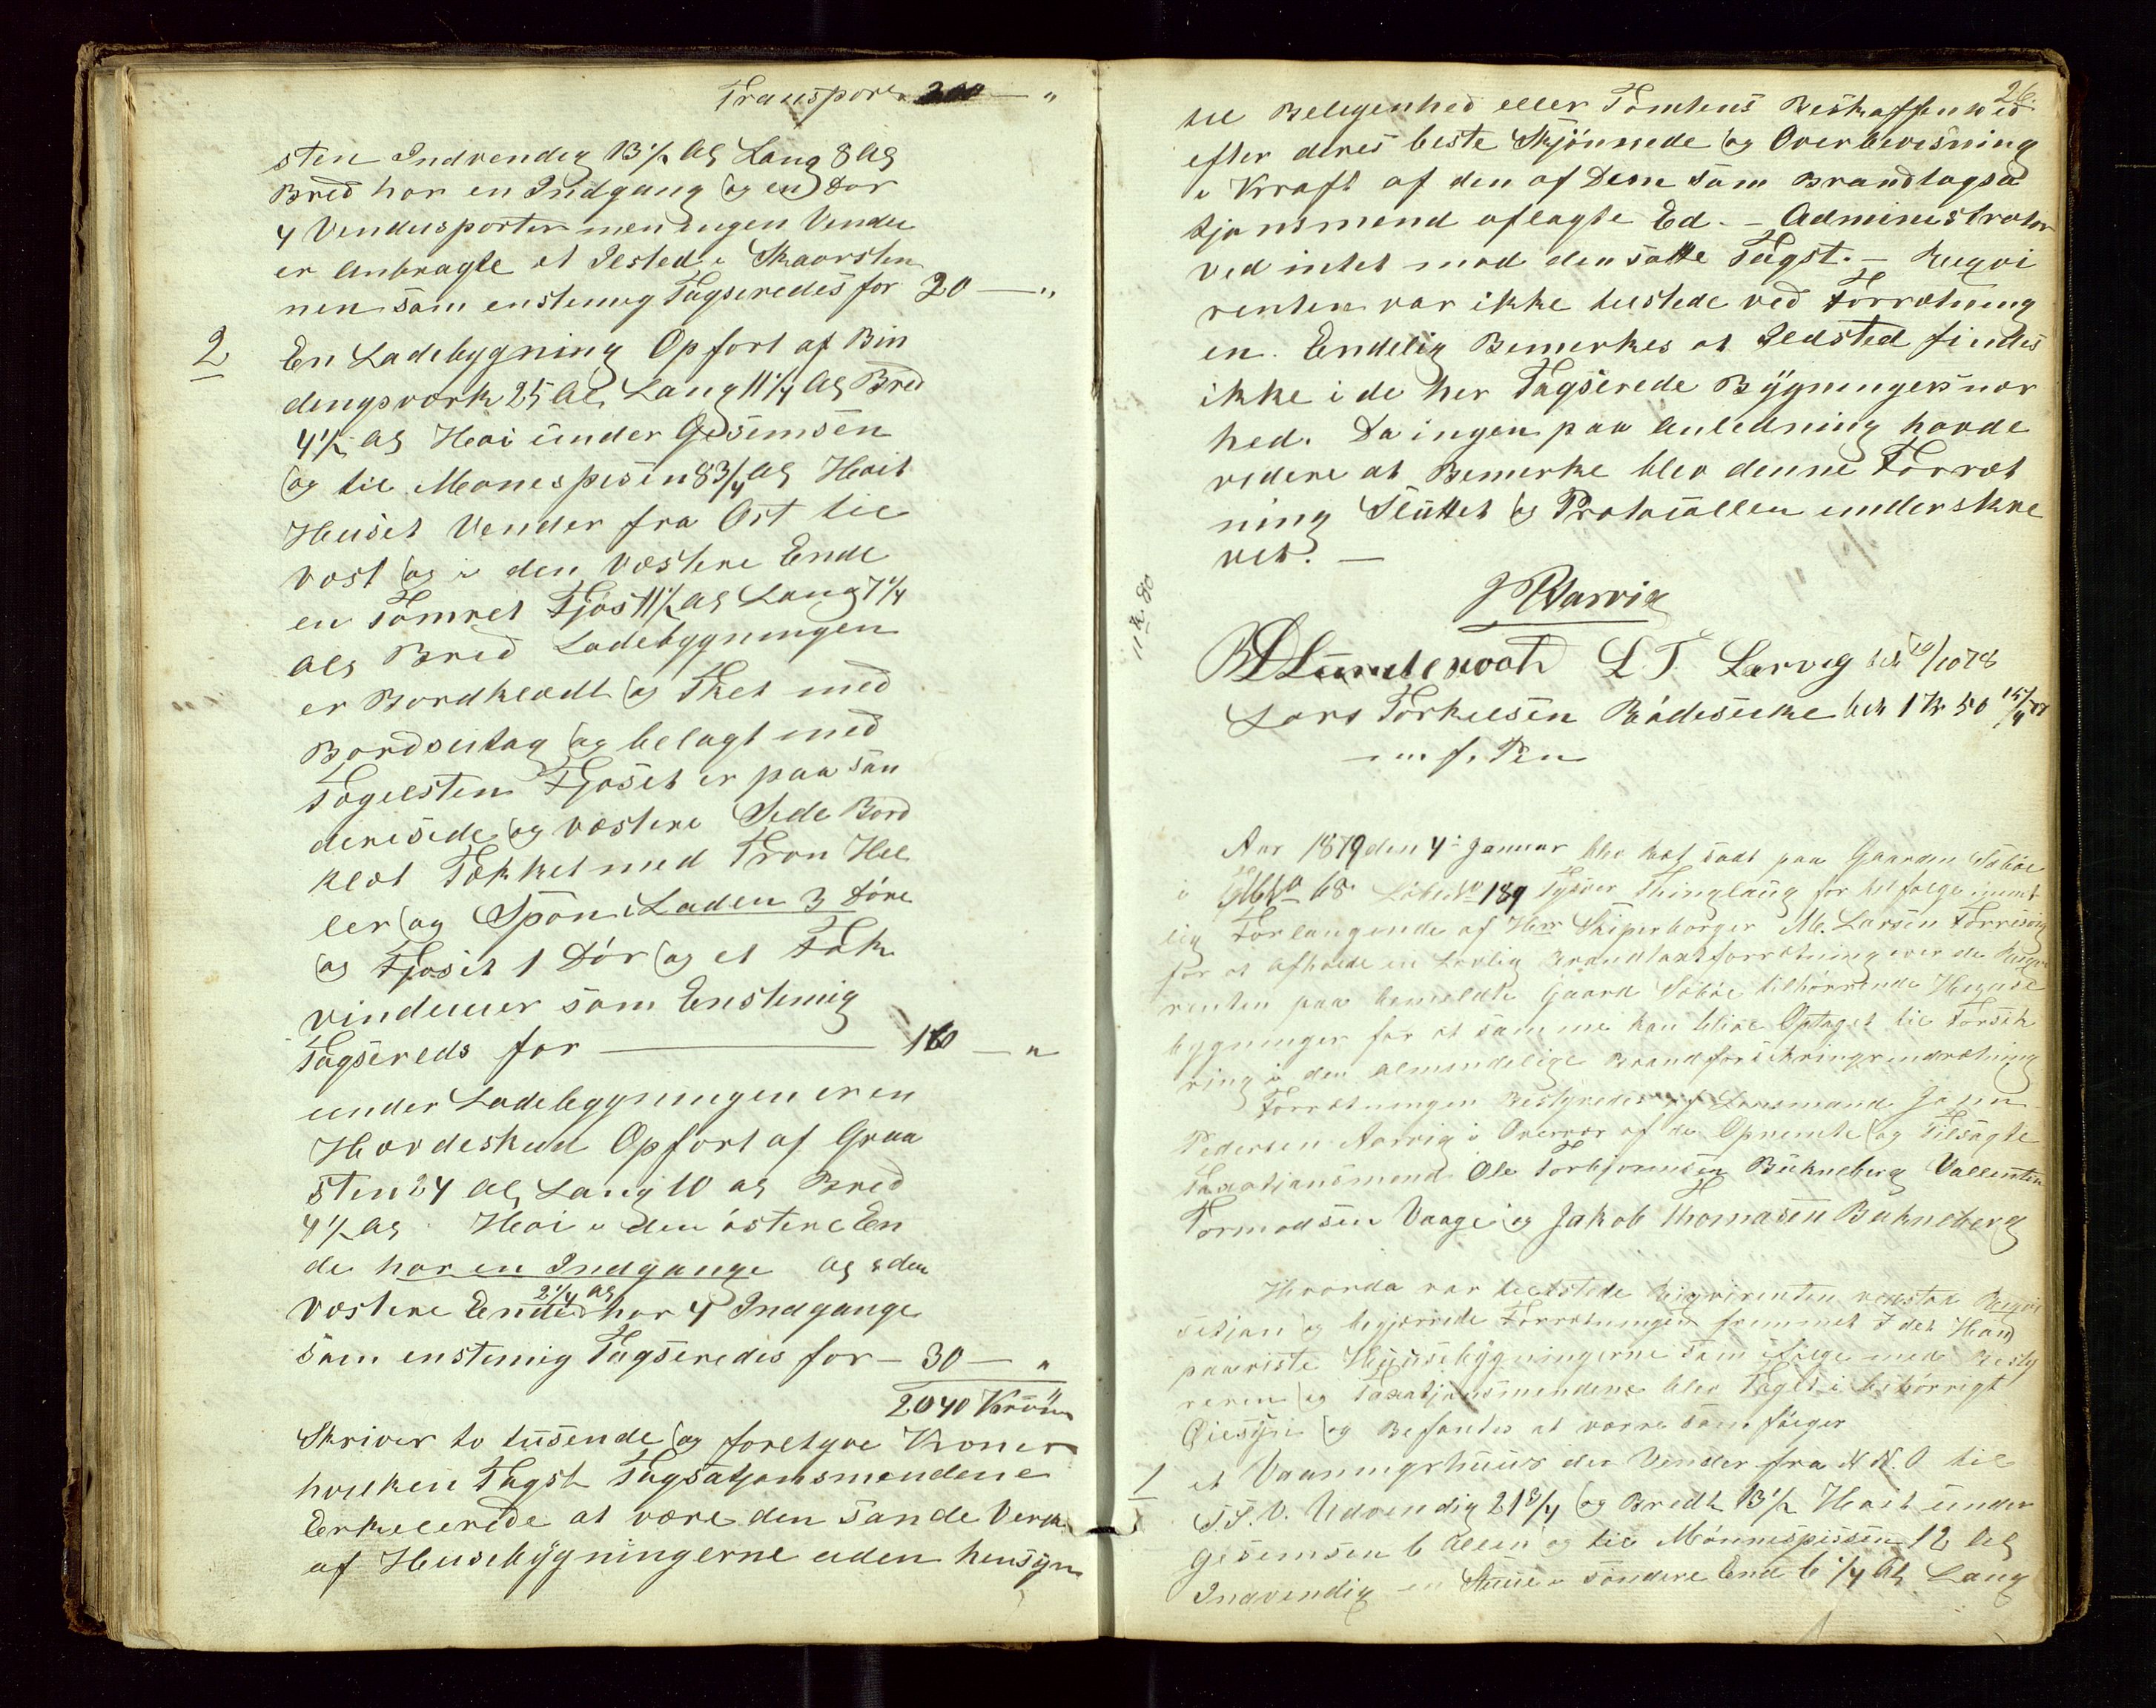 Transport 200 — "
sten Indvendig 13 1/2 Al Lang 8 Al
Bred har en Indgang og en Dør
4 Vendusporter men ingen Vendu
er Anbragte et Ilsted i Skaarsten
nen som enstemig Tagseredes for 20 — "
2 En Ladebygning Opfort af Bin
dingsværk 25 Al Lang 11 1/4 Al Bred
4 1/2 Al Høi under Gesimsen
og til Mønespisen 8 3/4 Al Høit
Huset Vender fra Øst til
vest og i den vestere Ende
en Tømret Fjøs 11 1/2 Al Lang 7 1/4
Al Bred Ladebygningen
er Bordklædt og Tket med
Bordsutag og belagt med
Tagelsten Fjøset er paa søn
dereside og vestere Side Bord
klæt Tækket med Tron Hel
ler og Spon i Laden 3 Døre
og Fjøsit 1 Dør og et Fak
vinduuer som Enstemig
Tagsereds for — 160 — "
under Ladebygningen er en
Hærdeskun Opfort af Graa
sten 24 Al Lang 10 Al Bred
4 1/2 Al Høi i den østere En
de har en Indgange og i den
2 1/4 Al
vestere Ende har 4 Indgange
som enstemig Tagseredes for — 30 — "
2040 Kroner
Skriver to tusende og føretyve Kroner
hvilken Tagst Tagsatjonsmendene
Erkelerede at være den sande Verdi
af Husebygningerne uden hensyn
26.
til Belegenhed eller Tomtens Beskaffenhed
efter deres beste Skjønnede og Overbevisning
i Kraft af den af Dem som Brandtagsa
tjonsmend aflagte Ed. — Administrator
ved intet mod den satte Tagst. — Reqvi
renten var ikke tilstede ved Forretning
en. Endelig Bemerkes at Ildsted findes
ikke i de her Tagserede Bygningers nær
hed. Da ingen paa Anledning havde
videre at Bemerke blev denne Forret
ning Sluttet og Protocollen underskre
vet. —
JPAarvig
Lundervold L. T. Larvig
Lars Torkelsen Rødesike bet 1 Kr 50
m. f. Pen
Aar 1879 den 4: Januar blev Ret sadt paa Gaarden Søbøe
68 Løbe No 189 Tysvær Thinglaug for til følge
lig Forlangende af Herr Skiperborger M. Larsen Førresvig
for at afholde en Lovlig Brandtaxtforretning over de Reqvi
renten paa bemeldte Gaard Søbøe tilhørrende Huuse
bygninger for at samme kan blive Optaget til Forsik
ring i den almindelige Brandforsikringsindretning
Forretningen Bestyredes af Lensmand John
Pedersen Aarvig i Overvær af de Opnemte og Tilsagte
Taxatjonsmend Ole Torbjørnsen Bukneberg Vallentin
Tormodsen Vaage og Jakob Thomasen Bukneberg
Hvorda var tilstede Reqvirenten Reqvi
setjon og begjærede Forretningen fremmet I det Han
paaviste Huusebygningerne som ifølge med Besty
reren og Taxatjonsmendene blev Taget i behørrigt
Øiesyn og Befantes at være som følger
1 et Vaaningshuus der Vender fra N.N.O til
S.S.V. Udvendig 21 3/4 og Bredt 13 1/2 Høit under
Gesimsen 6 Allen og til Mønnespissen 12 Al
Indvendig en Stuue i søndere End 6 1/4 Al Lang